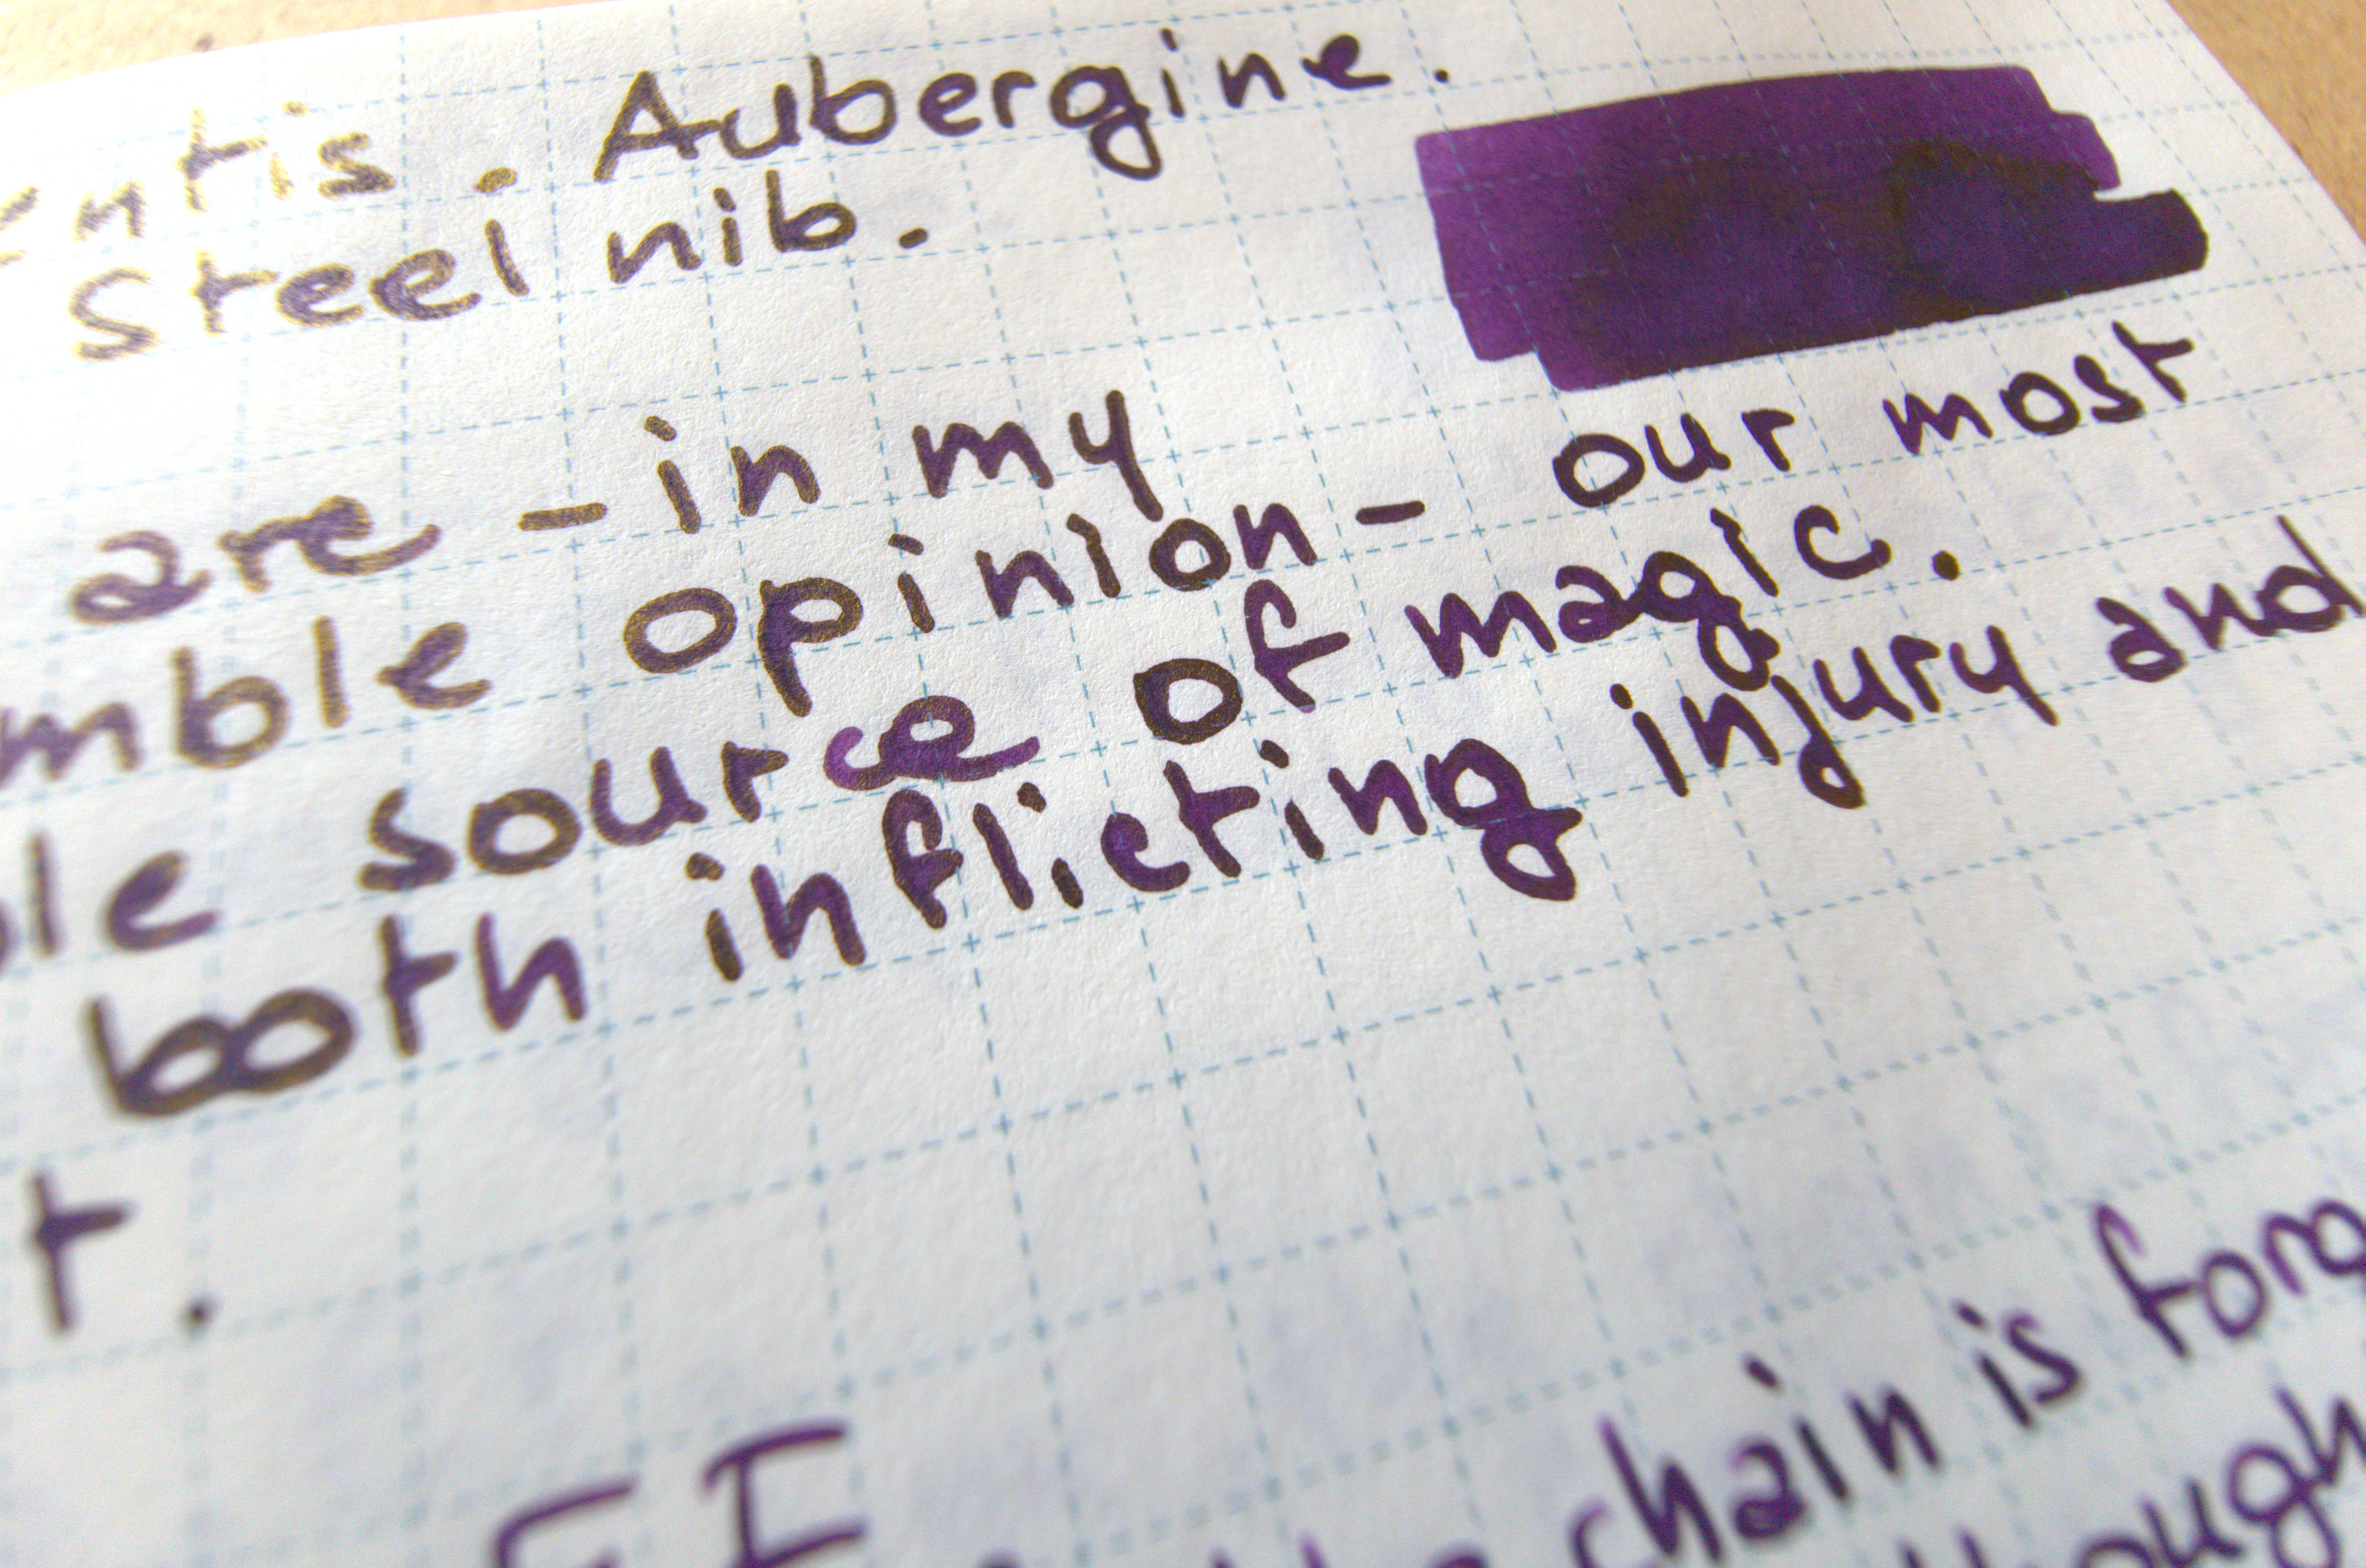 entis. Aubergine.
Steel nib.
are - in my
mble opinion - our most
le source of magic.
both inflicting injury and
t.
chain is forg
ough